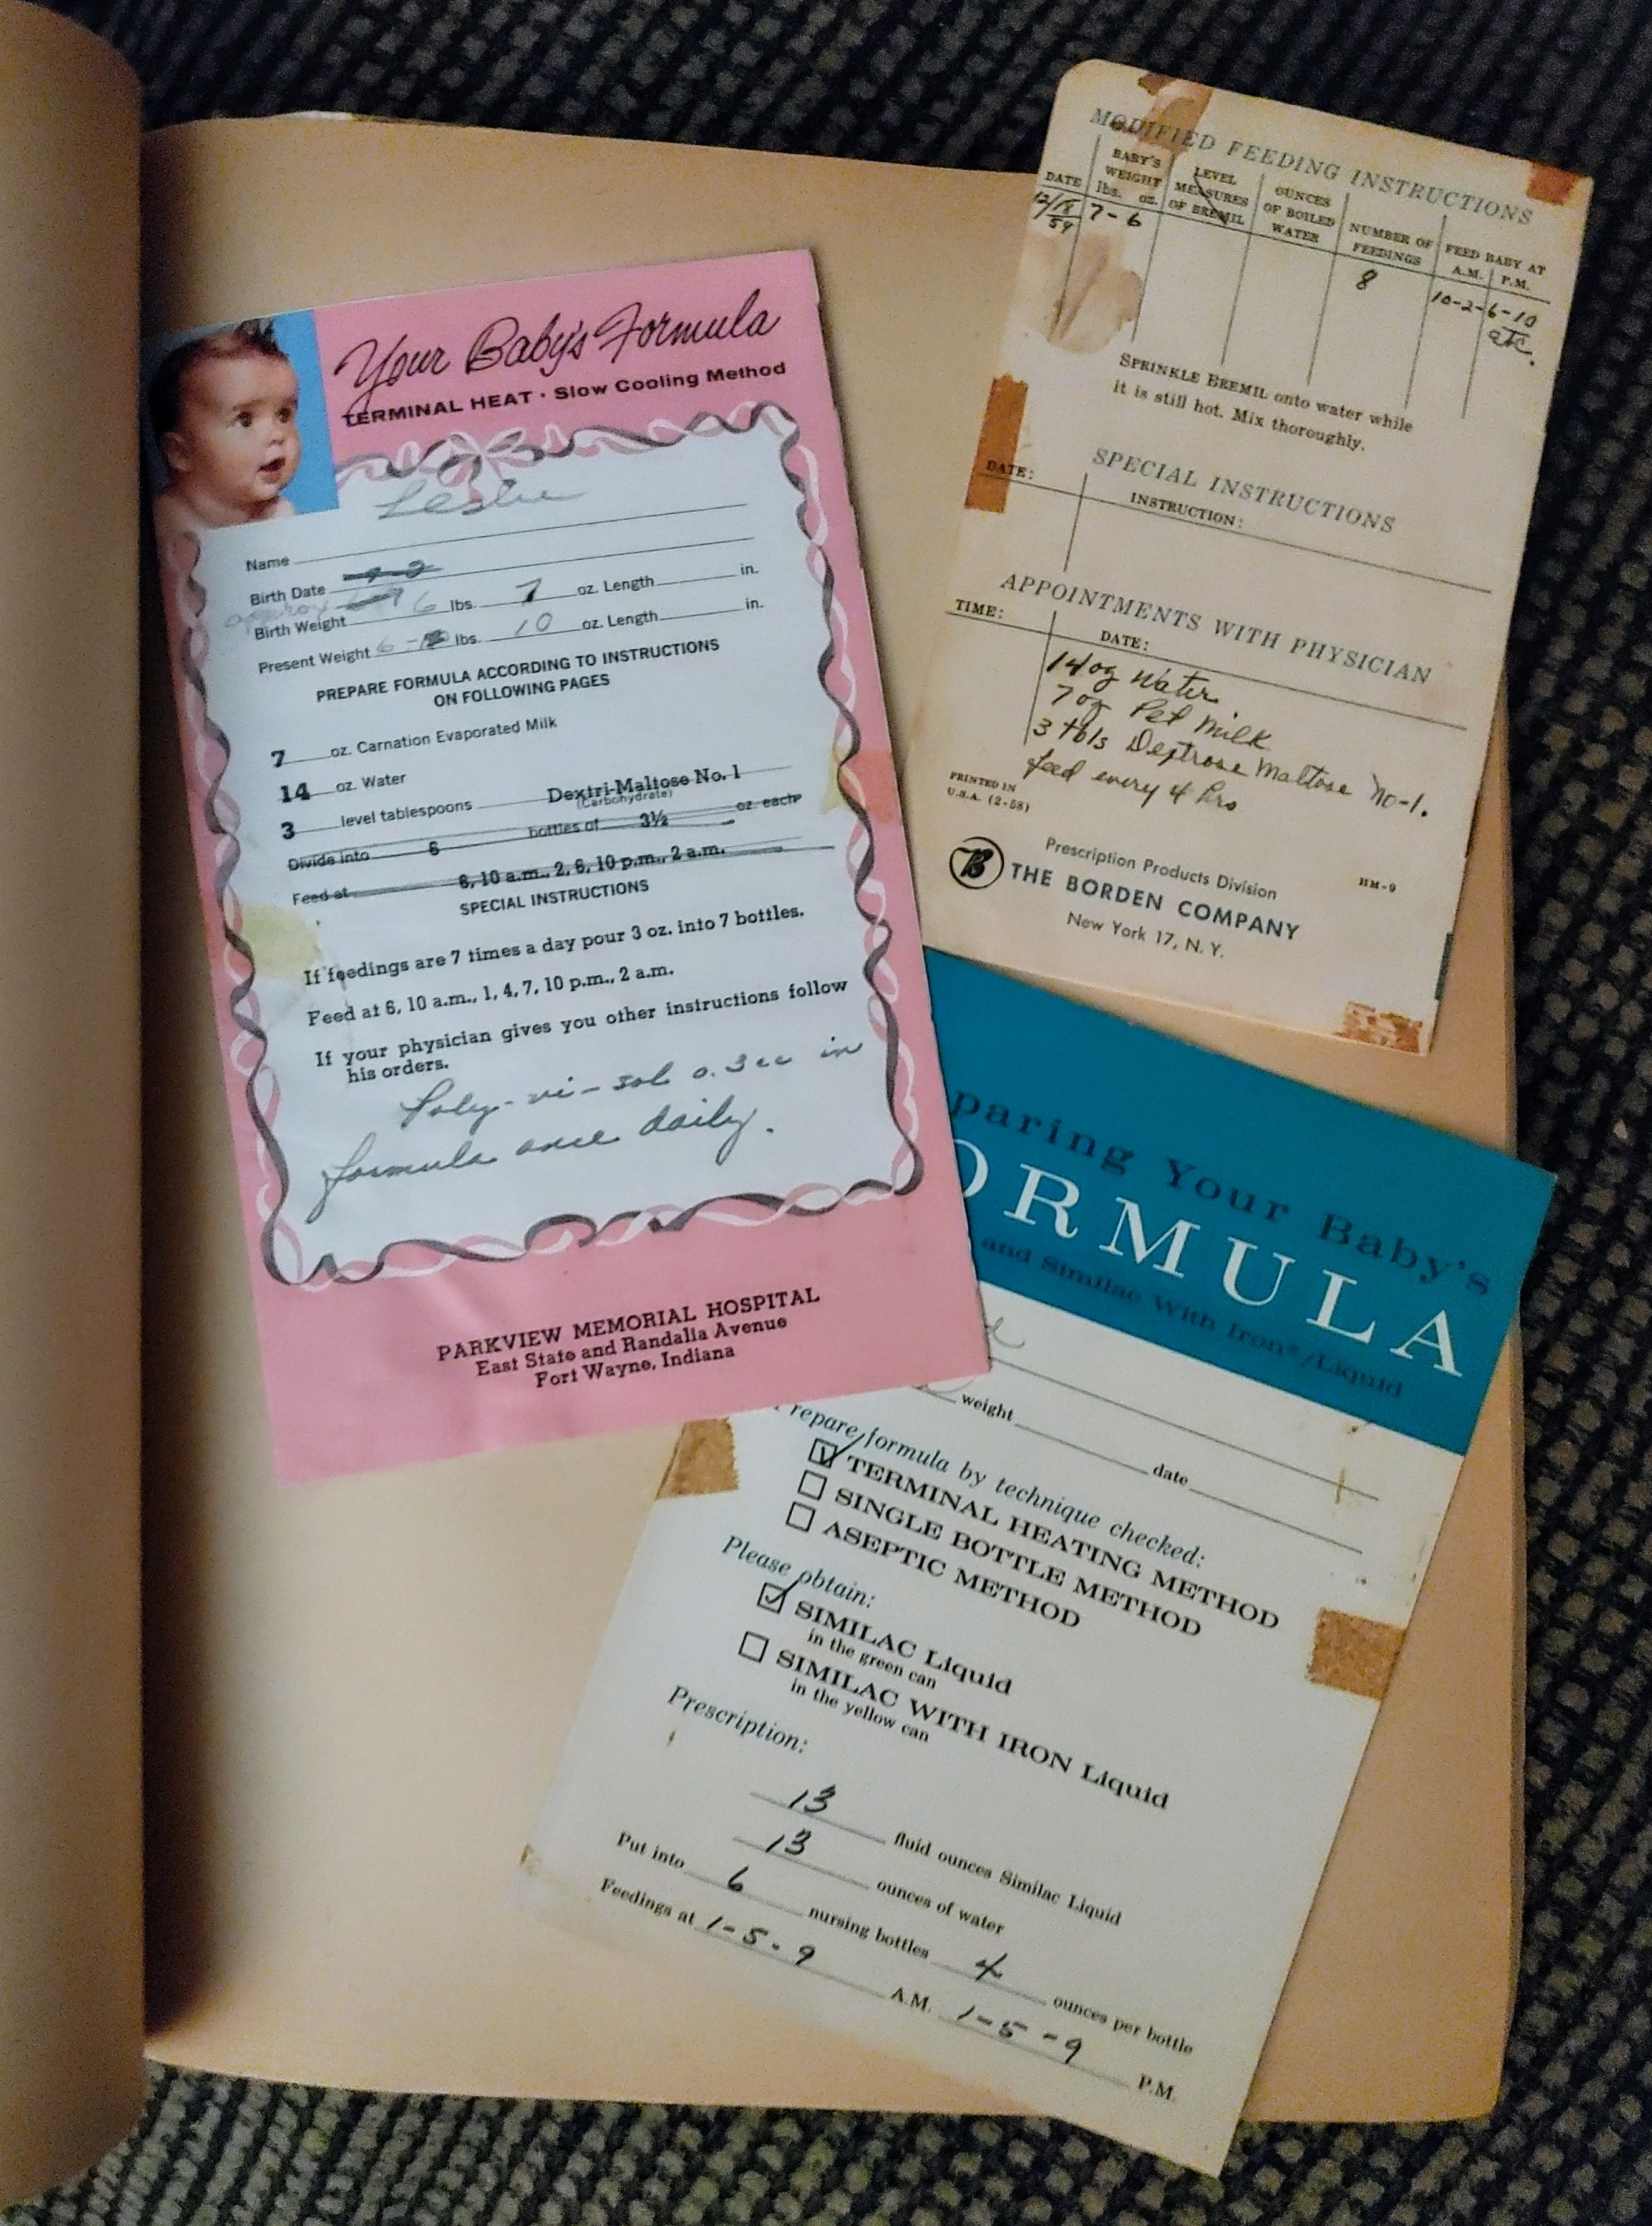 Your Baby's Formula
TERMINAL HEAT · Slow Cooling Method
Leslie
Name
Birth Date
approx
Birth Weight 6 lbs. 7 oz. Length in.
Present Weight 6 - lbs. 10 oz. Length in.
PREPARE FORMULA ACCORDING TO INSTRUCTIONS
ON FOLLOWING PAGES
7 oz. Carnation Evaporated Milk
14 oz. Water
3 level tablespoons Dextri-Maltose No. 1
(Carbohydrate)
Divide into 6 bottles of 3½ oz. each
Feed at 6, 10 a.m., 2, 6, 10 p.m., 2 a.m.
SPECIAL INSTRUCTIONS
If feedings are 7 times a day pour 3 oz. into 7 bottles.
Feed at 6, 10 a.m., 1, 4, 7, 10 p.m., 2 a.m.
If your physician gives you other instructions follow
his orders.
Poly-vi-sol 0.3 cc in
formula once daily.
PARKVIEW MEMORIAL HOSPITAL
East State and Randalia Avenue
Fort Wayne, Indiana
MODIFIED FEEDING INSTRUCTIONS
DATE
BABY'S
WEIGHT
lbs. oz.
LEVEL
MEASURES
OF BREMIL
OUNCES
OF BOILED
WATER
NUMBER OF
FEEDINGS
FEED BABY AT
A.M. P.M.
12/18
59
7-6
8
10-2-6-10
etc.
SPRINKLE BREMIL onto water while
it is still hot. Mix thoroughly.
SPECIAL INSTRUCTIONS
DATE:
INSTRUCTION:
APPOINTMENTS WITH PHYSICIAN
TIME:
DATE:
14 oz Water
7 oz Pet Milk
3 tbls Dextrose Maltose No-1.
feed every 4 hrs
PRINTED IN
U.S.A. (2-58)
B
Prescription Products Division
THE BORDEN COMPANY
New York 17, N. Y.
HM-9
paring Your Baby's
ORMULA
and Similac With Iron*/Liquid
weight
date
Prepare formula by technique checked:
TERMINAL HEATING METHOD
SINGLE BOTTLE METHOD
ASEPTIC METHOD
Please obtain:
SIMILAC Liquid
in the green can
SIMILAC WITH IRON Liquid
in the yellow can
Prescription:
13 fluid ounces Similac Liquid
13 ounces of water
Put into 6 nursing bottles 4 ounces per bottle
Feedings at 1-5-9 A.M. 1-5-9 P.M.